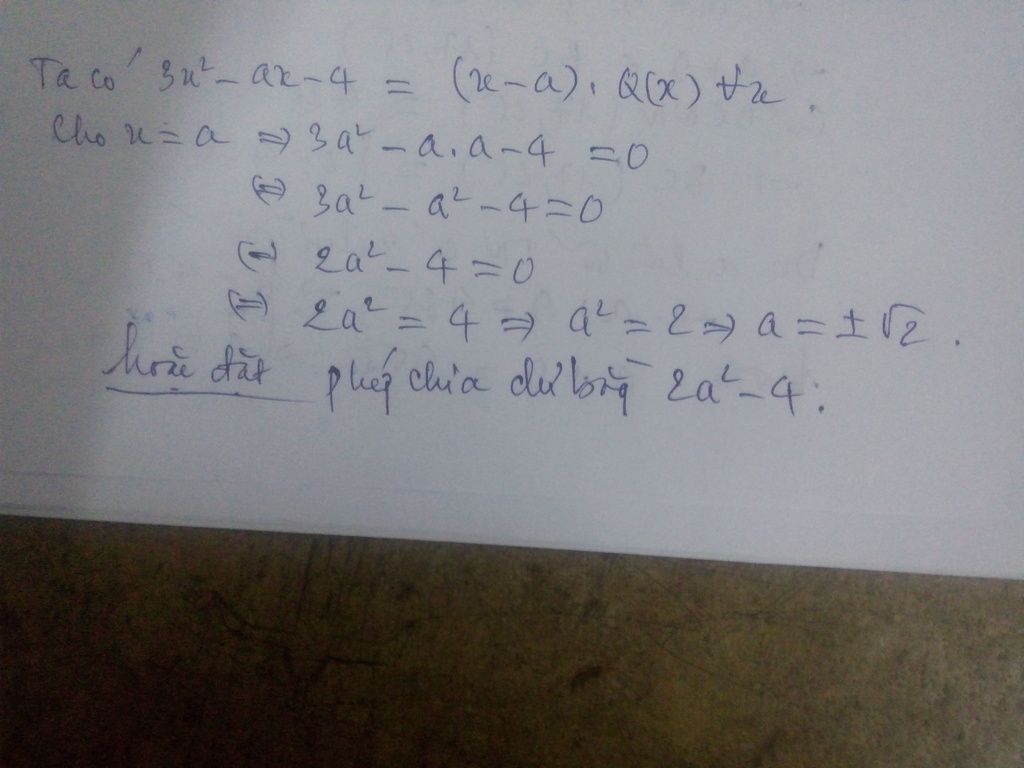 Ta có 3x² - ax - 4 = (x - a). Q(x) ∀x.
Cho x = a ⇒ 3a² - a.a - 4 = 0
(=) 3a² - a² - 4 = 0
(=) 2a² - 4 = 0
(=) 2a² = 4 ⇒ a² = 2 ⇒ a = ±√2.
hoặc đặt phép chia dư bằng 2a² - 4: